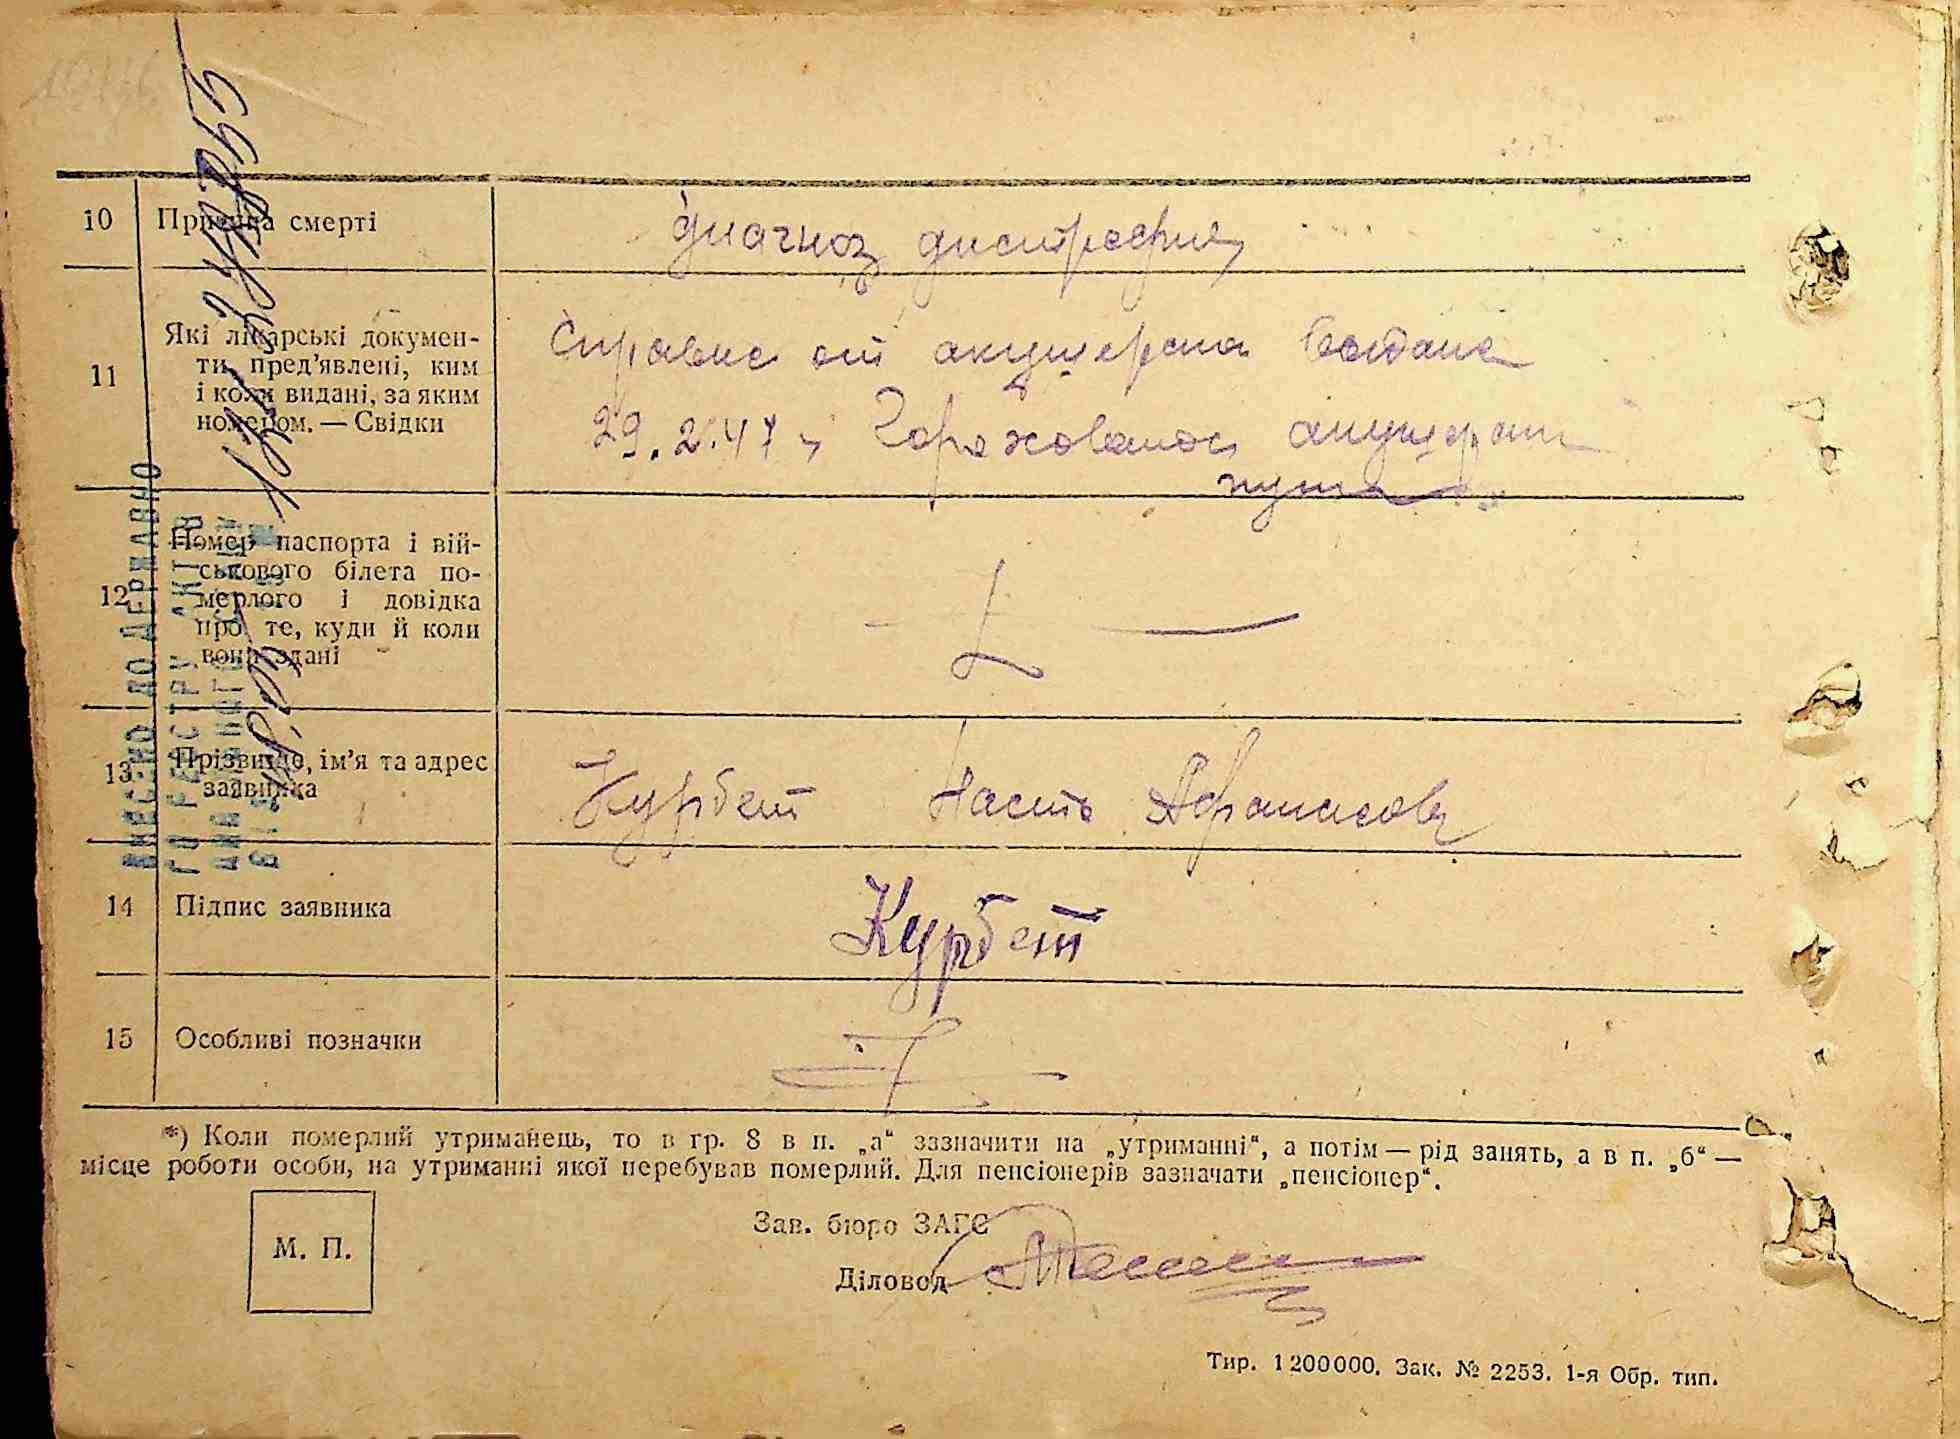 10 Причина смерті диагноз дистрофия
11 Які лікарські докумен-
ти пред’явлені, ким
і коли видані, за яким
номером. — Свідки
Справка от акушерка
29. 2. 47
акушерск
пункта
12 Номер паспорта і вій-
ськового білета по-
мерлого і довідка
про те, куди й коли
вони здані
13 Прізвище, ім’я та адрес
заявника
Курбет Насть Афанасов
14 Підпис заявника Курбет
15 Особливі позначки
*) Коли померлий утриманець, то в гр. 8 в п. „а“ зазначити на „утриманні“, а потім — рід занять, а в п. „б“ —
місце роботи особи, на утриманні якої перебував померлий. Для пенсіонерів зазначати „пенсіонер“.
М. П.
Зав. бюро ЗАГС
Діловод
Тир. 1200000. Зак. № 2253. 1-я Обр. тип.
ВНЕСЕНО ДО ДЕРЖАВНО
ГО РЕЄСТРУ АКТІВ
ЦИВІЛЬНОГО СТАНУ